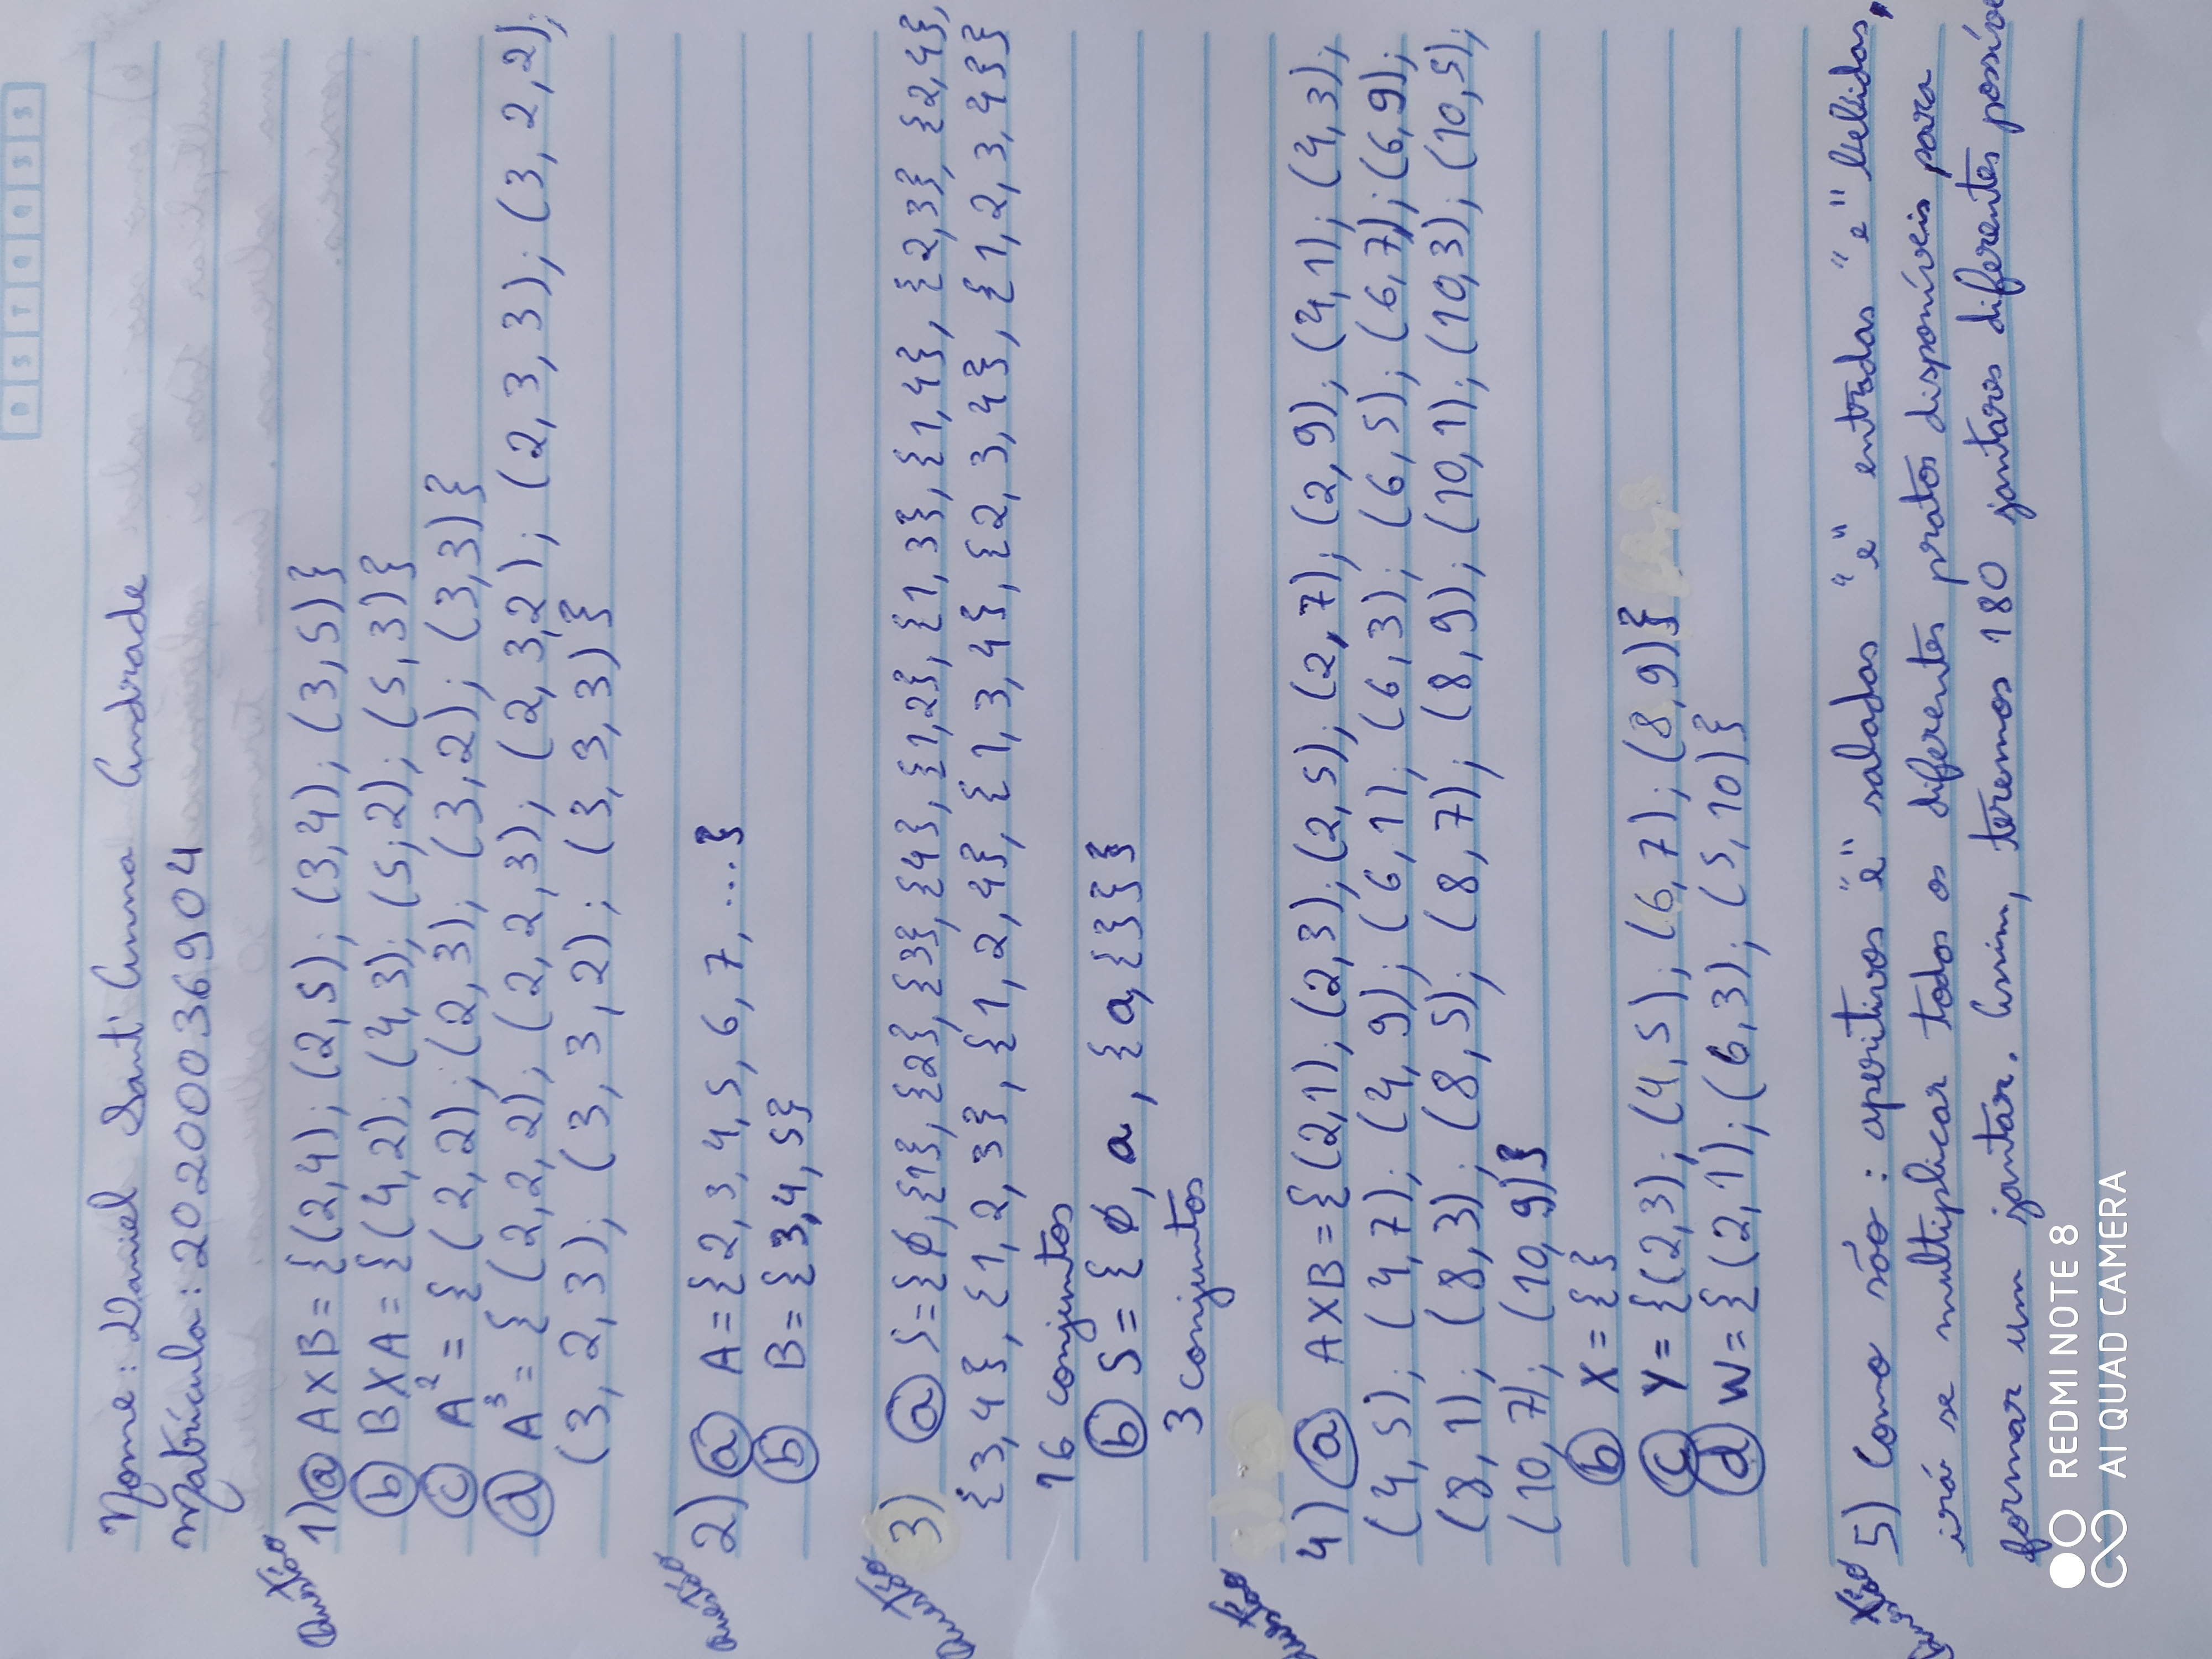 D S T Q Q S S
Nome: Daniel Sant'Anna Andrade
Matrícula: 20200036904
Questão
1) a A X B = {(2,4); (2,5); (3,4); (3,5)}
b B X A = {(4,2); (4,3); (5;2); (5,3)}
c A² = {(2,2); (2,3); (3,2); (3,3)}
d A³ = {(2,2,2); (2,2,3); (2,3,2); (2,3,3); (3,2,2);
(3,2,3); (3,3,2); (3,3,3)}
Questão
2) a A = {2, 3, 4, 5, 6, 7, ...}
b B = {3,4,5}
Questão
3) a S = {∅, {1}, {2}, {3}, {4}, {1,2}, {1,3}, {1,4}, {2,3}, {2,4},
{3,4}, {1,2,3}, {1,2,4}, {1,3,4}, {2,3,4}, {1,2,3,4}}
16 conjuntos
b S = {∅, a, {a,{}}}
3 conjuntos
Questão
4) a A X B = {(2,1); (2,3); (2,5); (2,7); (2,9); (4,1); (4,3);
(4,5); (4,7); (4,9); (6,1); (6,3); (6,5); (6,7); (6,9);
(8,1); (8,3); (8,5); (8,7); (8,9); (10,1); (10,3); (10,5);
(10,7); (10,9)}
b X = { }
c Y = {(2,3); (4,5); (6,7); (8,9)}
d W = {(2,1); (6,3); (5,10)}
Questão
5) Como são: aperitivos "e" saladas "e" entradas "e" bebidas,
irá se multiplicar todos os diferentes pratos disponíveis para
formar um jantar. Assim, teremos 180 jantares diferentes possíve
REDMI NOTE 8
AI QUAD CAMERA